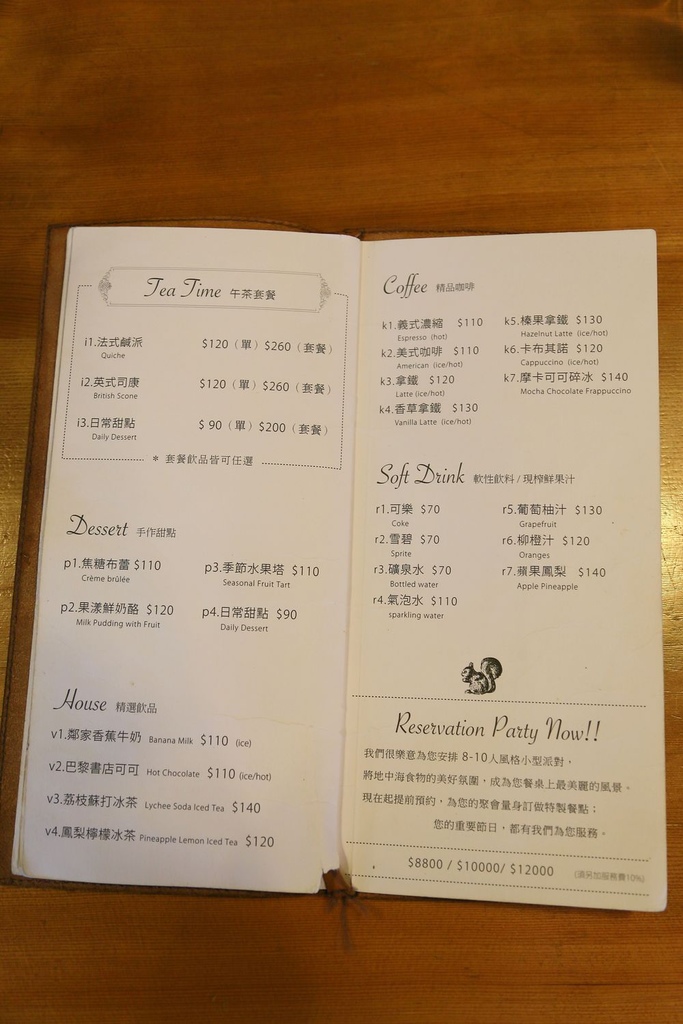 Tea Time 午茶套餐
i1.法式鹹派 $120（單）$260（套餐）
Quiche
i2.英式司康 $120（單）$260（套餐）
British Scone
i3.日常甜點 $ 90（單）$200（套餐）
Daily Dessert
* 套餐飲品皆可任選
Dessert 手作甜點
p1.焦糖布蕾 $110
Crème brûlée
p2.果漾鮮奶酪 $120
Milk Pudding with Fruit
p3.季節水果塔 $110
Seasonal Fruit Tart
p4.日常甜點 $90
Daily Dessert
House 精選飲品
v1.鄰家香蕉牛奶 Banana Milk $110 (ice)
v2.巴黎書店可可 Hot Chocolate $110 (ice/hot)
v3.荔枝蘇打冰茶 Lychee Soda Iced Tea $140
v4.鳳梨檸檬冰茶 Pineapple Lemon Iced Tea $120
Coffee 精品咖啡
k1.義式濃縮 $110
Espresso (hot)
k2.美式咖啡 $110
American (ice/hot)
k3.拿鐵 $120
Latte (ice/hot)
k4.香草拿鐵 $130
Vanilla Latte (ice/hot)
k5.榛果拿鐵 $130
Hazelnut Latte (ice/hot)
k6.卡布其諾 $120
Cappuccino (ice/hot)
k7.摩卡可可碎冰 $140
Mocha Chocolate Frappuccino
Soft Drink 軟性飲料 / 現榨鮮果汁
r1.可樂 $70
Coke
r2.雪碧 $70
Sprite
r3.礦泉水 $70
Bottled water
r4.氣泡水 $110
sparkling water
r5.葡萄柚汁 $130
Grapefruit
r6.柳橙汁 $120
Oranges
r7.蘋果鳳梨 $140
Apple Pineapple
Reservation Party Now!!
我們很樂意為您安排 8-10人風格小型派對，
將地中海食物的美好氛圍，成為您餐桌上最美麗的風景。
現在起提前預約，為您的聚會量身訂做特製餐點；
您的重要節日，都有我們為您服務。
$8800 / $10000/ $12000 (須另加服務費10%)